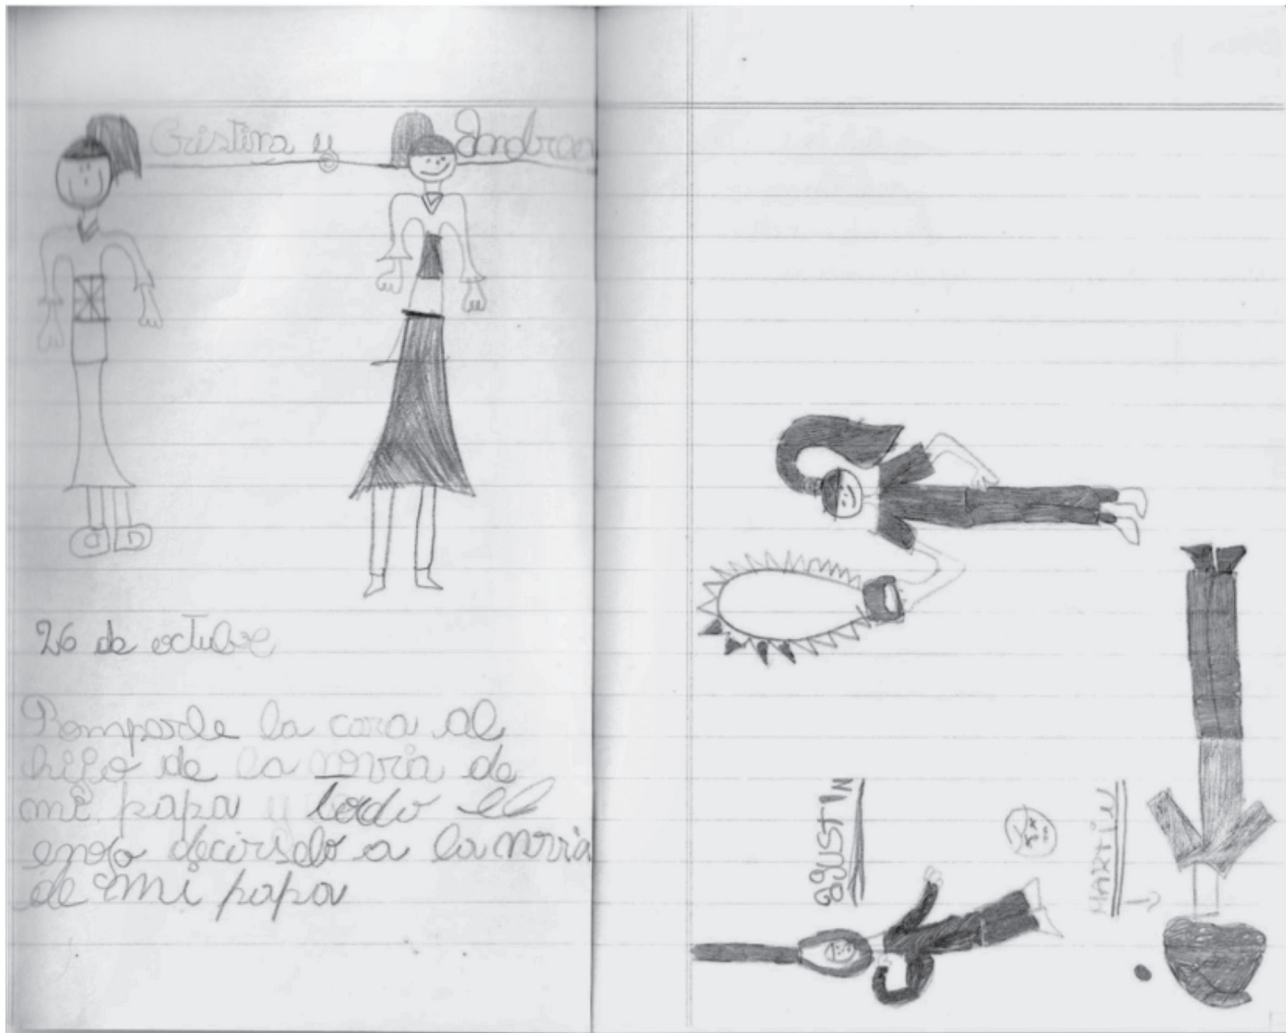 Cristina y Andrea
26 de octubre
Romperle la cara al
hijo de la novia de
mi papa y todo el
enojo decirselo a la novia
de mi papa
AGUSTIN
MARTIN